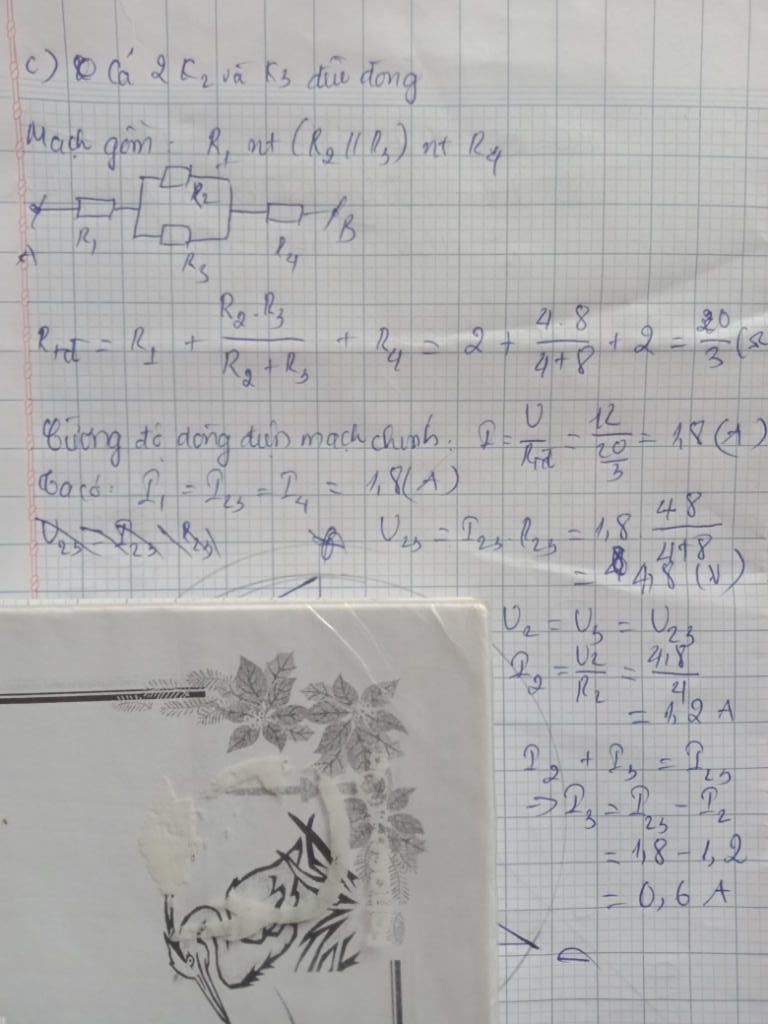 c) Cả 2 K2 và K3 đều đóng
Mạch gồm: R1 nt (R2 // R3) nt R4
R2
A R1 R3 R4 B
Rtđ = R1 + (R2.R3)/(R2+R3) + R4 = 2 + (4.8)/(4+8) + 2 = 20/3 (Ω
Cường độ dòng điện mạch chính: I = U/Rtđ = 12/(20/3) = 1,8 (A)
Ta có: I1 = I23 = I4 = 1,8 (A)
U23 = I23 . R23
U23 = I23 . R23 = 1,8 (4 8)/(4+8)
= 4,8 (V)
U2 = U3 = U23
I2 = U2/R2 = 4,8/4
= 1,2 A
I2 + I3 = I23
=> I3 = I23 - I2
= 1,8 - 1,2
= 0,6 A